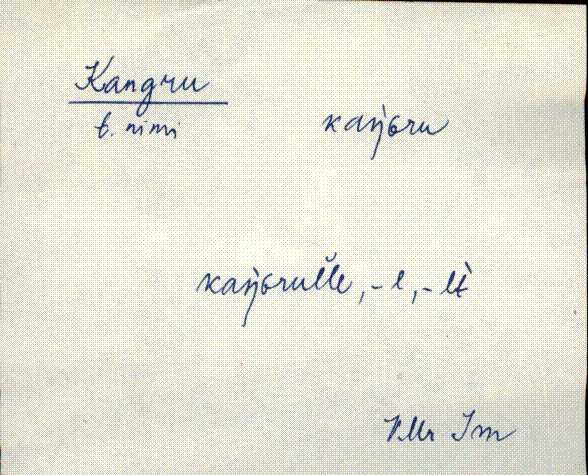 Kangru
t. nimi kaŋ̀ɢru
kaŋ̀ɢrul̆le, -l, -lt̀
VMr Im